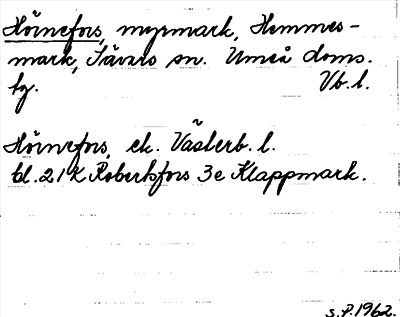 Hörnefors, myrmark, Hemmes-
mark, Sävars sn. Umeå doms.
fg. Vb. l.
Hörnefors, ek. Västerb. l.
bl. 21 K Robertsfors 3e Klappmark.
S.P. 1962.